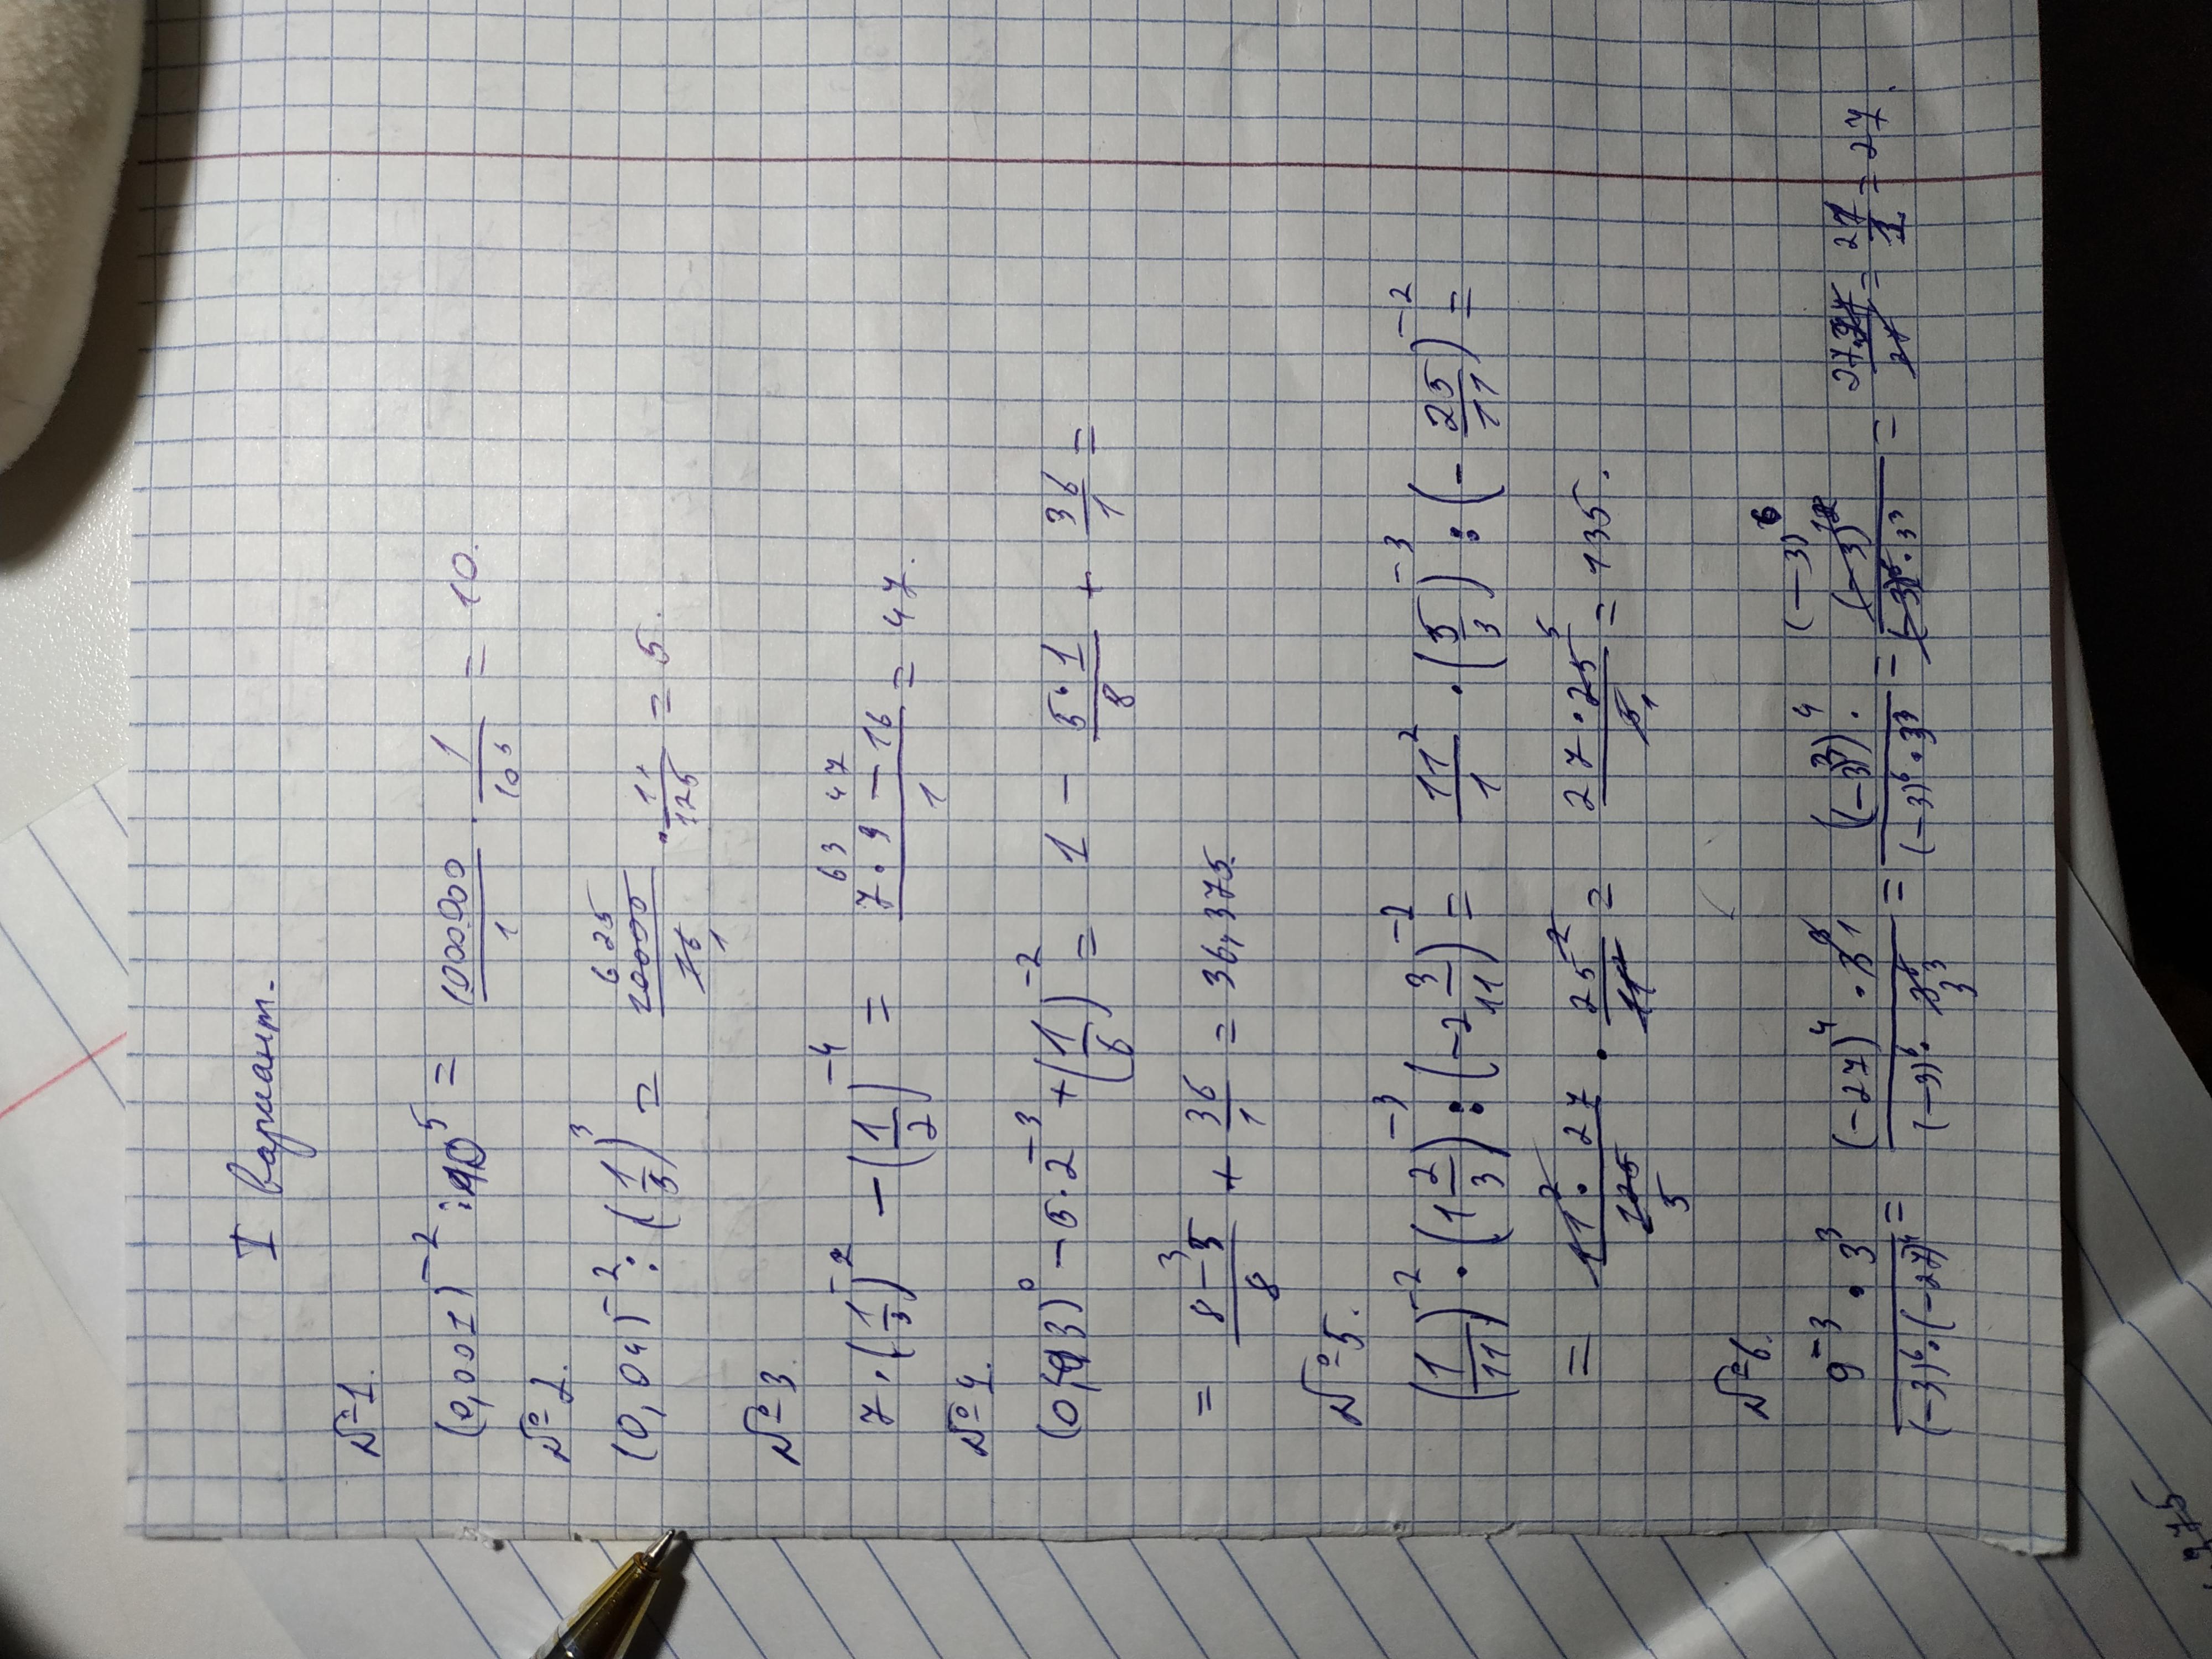 I вариант.
№1.
(0,001)⁻² : 10⁵ = 1000000/1 · 1/10⁵ = 10.
№2.
(0,04)⁻² : (1/5)³ = 10000 625/16 1 · 1/125 = 5.
№3
7 · (1/3)⁻² − (1/2)⁻⁴ = 63 47 7 · 9 − 16/1 = 47.
№4.
(0,93)⁰ − 5 · 2⁻³ + (1/6)⁻² = 1 − 5 · 1/8 + 36/1 =
= 8 − 5 3/8 + 36/1 = 36,375.
№5.
(1/11)⁻² · (1 2/3)⁻³ : (−2 3/11)⁻² = 11²/1 · (5/3)⁻³ : (− 25/11)⁻² =
= 11² · 27/125 5 · 25²/11² = 27 · 25 5/5 1 = 135.
№6.
9⁻³ · 3³/(−3)⁶ · (−27)⁻⁴ = (−27)⁴ · 1/(−3)⁶ · 3³ = ((−3)³)⁴ · /(−3)⁶ · 3³ = (−3)⁶ (−3)¹²/(−3)⁶ · 3³ = 27 · 27/27 = 27/1 = 27.
375